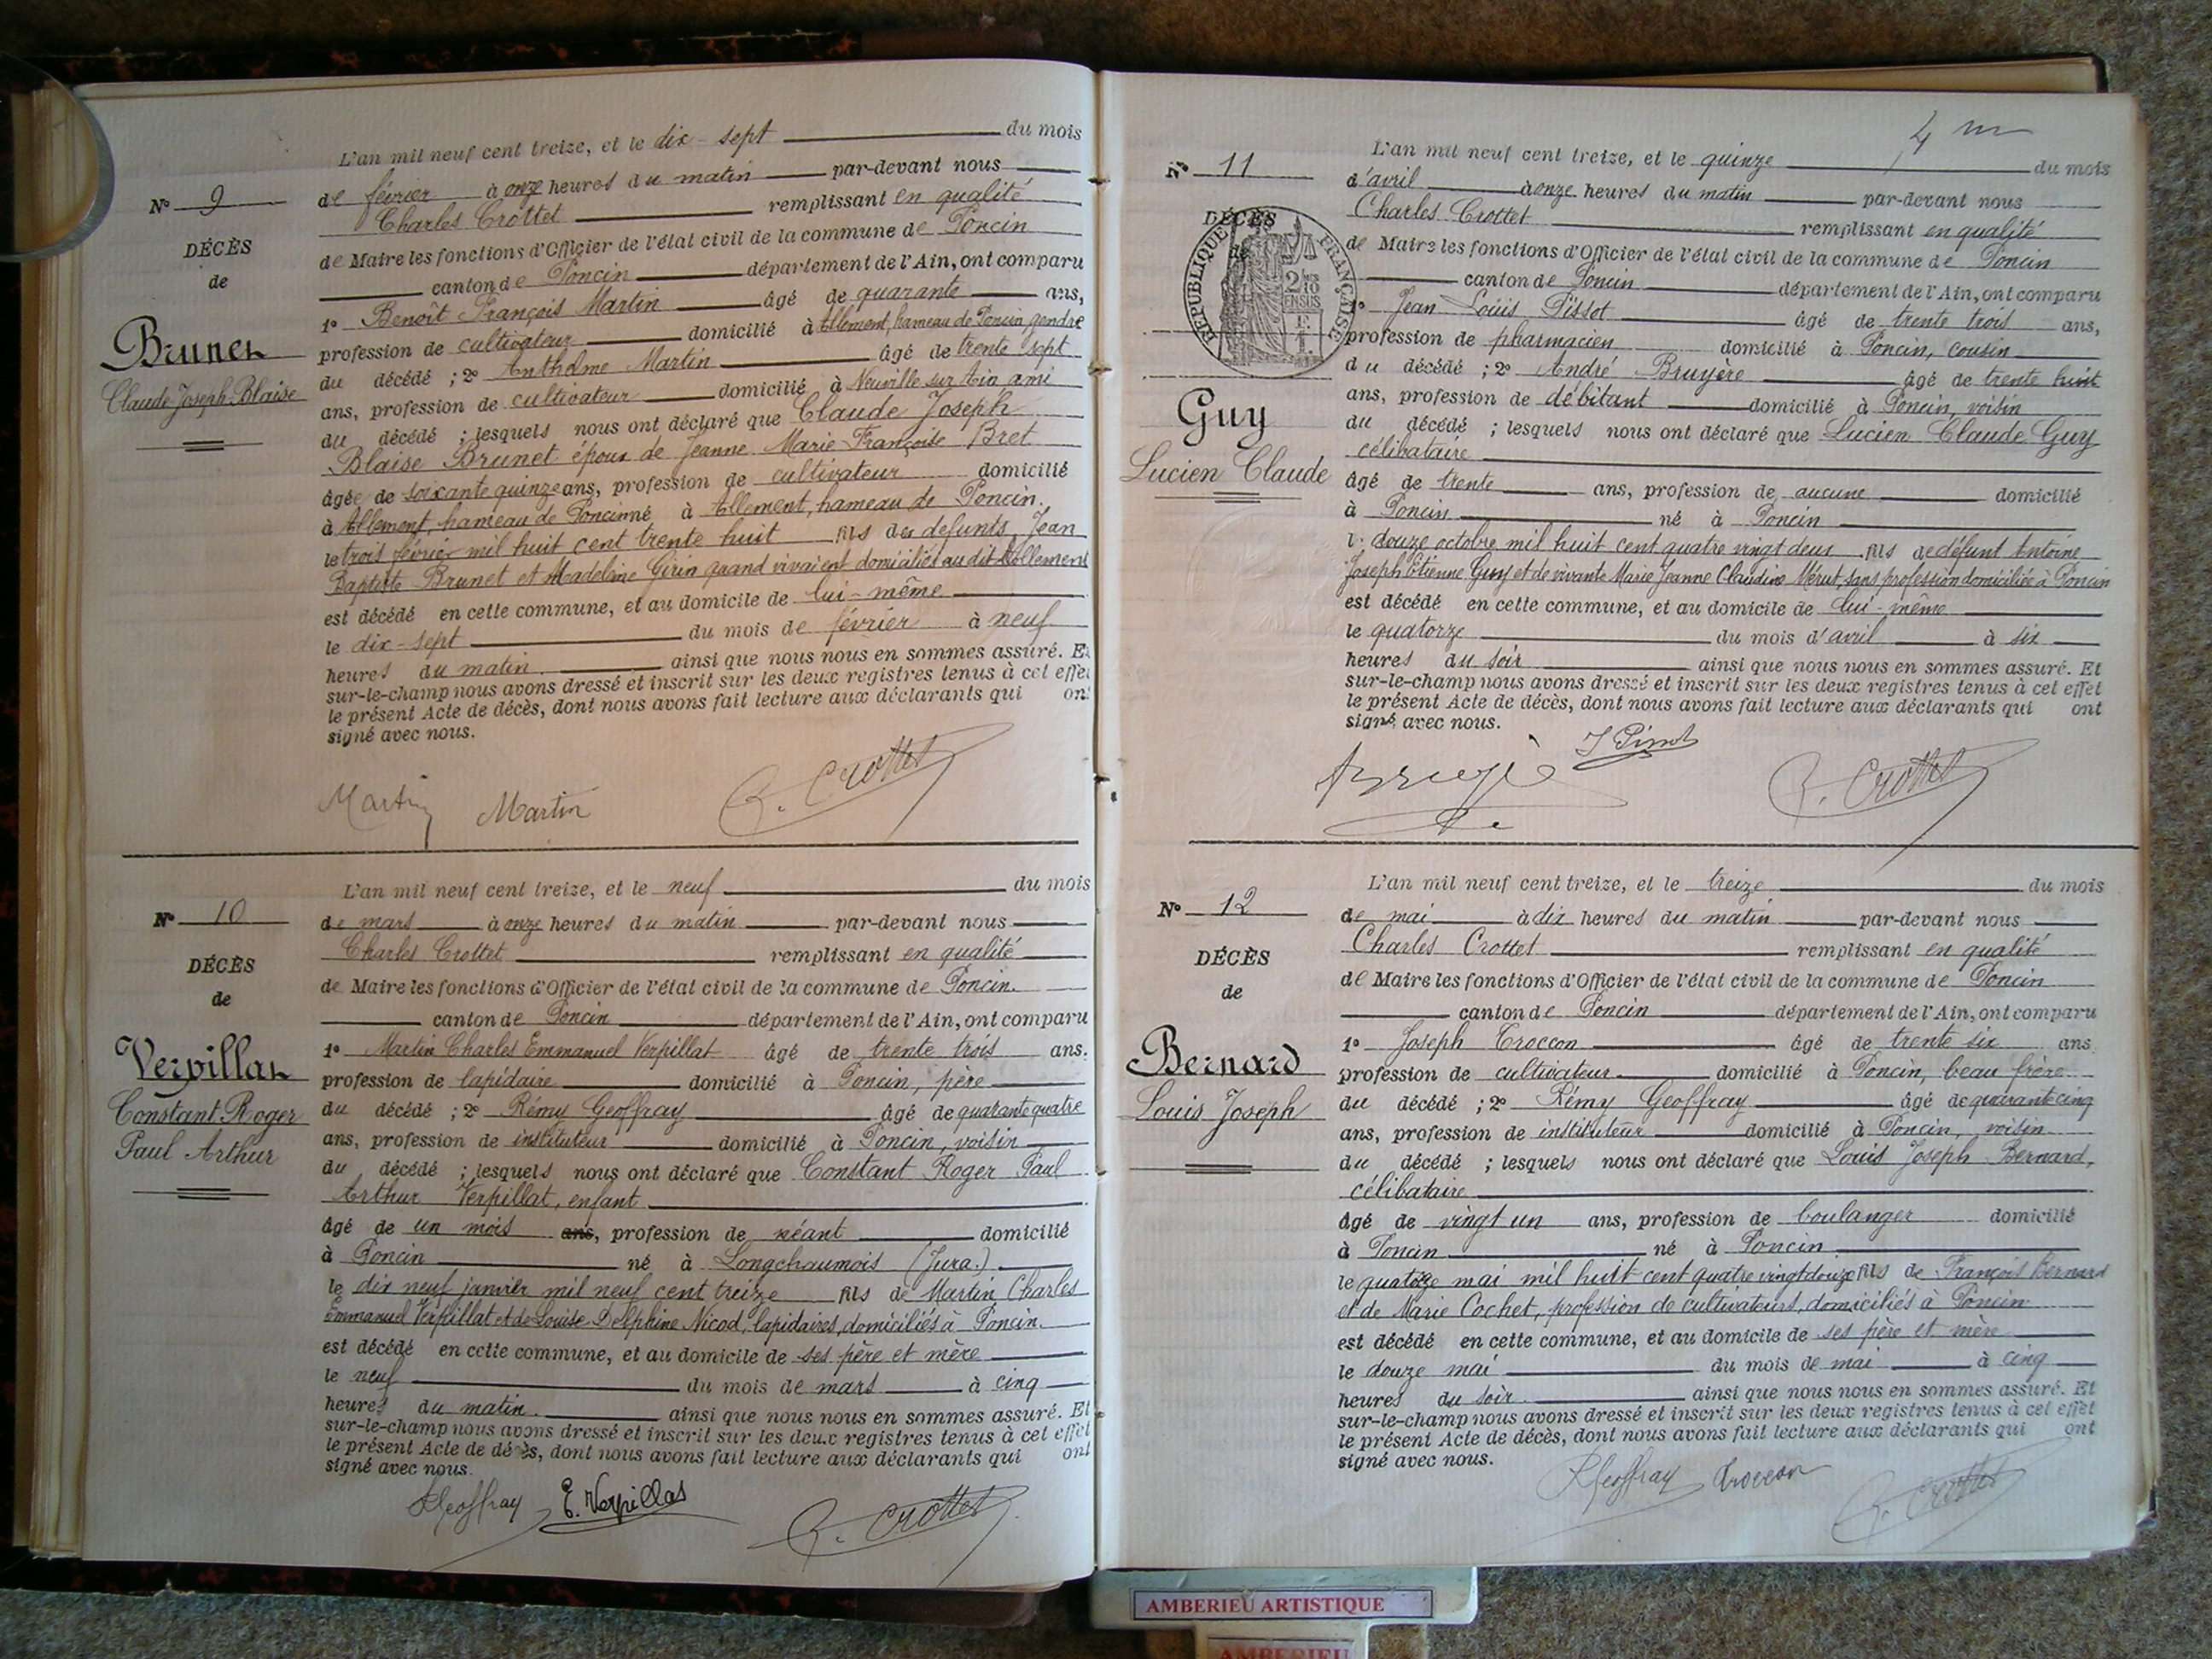 L'an mil neuf cent treize, et le dix-sept du mois
de février à onze heures du matin par-devant nous
Charles Crottet remplissant en qualité
de Maire les fonctions d'Officier de l'état civil de la commune de Poncin
canton de Poncin département de l'Ain, ont comparu
1º Benoît François Martin âgé de quarante ans,
profession de cultivateur domicilié à Allement, hameau de Poncin gendre
du décédé ; 2º Anthelme Martin âgé de trente sept
ans, profession de cultivateur domicilié à Neuville sur Ain ami
du décédé ; lesquels nous ont déclaré que Claude Joseph
Blaise Brunet époux de Jeanne Marie Françoise Bret
âgée de soixante quinze ans, profession de cultivateur domicilié
à Allement, hameau de Poncin né à Allement, hameau de Poncin.
le trois février mil huit cent trente huit fils des défunts Jean
Baptiste Brunet et Madeleine Girin quand vivaient domiciliés au dit Allement
est décédé en cette commune, et au domicile de lui-même
le dix-sept du mois de février à neuf
heures du matin. ainsi que nous nous en sommes assuré. Et
sur-le-champ nous avons dressé et inscrit sur les deux registres tenus à cet effet
le présent Acte de décès, dont nous avons fait lecture aux déclarants qui ont
signé avec nous.
Martin Martin C. Crottet
Nº 9
DÉCÈS
de
Brunet
Claude Joseph Blaise
L'an mil neuf cent treize, et le neuf du mois
de mars à onze heures du matin par-devant nous
Charles Crottet remplissant en qualité
de Maire les fonctions d'Officier de l'état civil de la commune de Poncin.
canton de Poncin département de l'Ain, ont comparu
1º Martin Charles Emmanuel Verpillat âgé de trente trois ans.
profession de lapidaire domicilié à Poncin, père
du décédé ; 2º Rémy Geoffray âgé de quarante quatre
ans, profession de instituteur domicilié à Poncin, voisin
du décédé ; lesquels nous ont déclaré que Constant Roger Paul
Arthur Verpillat, enfant
âgé de un mois ans, profession de néant domicilié
à Poncin né à Longchaumois (Jura.)
le dix neuf janvier mil neuf cent treize fils de Martin Charles
Emmanuel Verpillat et de Louise Delphine Nicod, lapidaires, domiciliés à Poncin.
est décédé en cette commune, et au domicile de ses père et mère
le neuf du mois de mars à cinq
heures du matin. ainsi que nous nous en sommes assuré. Et
sur-le-champ nous avons dressé et inscrit sur les deux registres tenus à cet effet
le présent Acte de décès, dont nous avons fait lecture aux déclarants qui ont
signé avec nous.
R Geoffray E. Verpillat C. Crottet
Nº 10
DÉCÈS
de
Verpillat
Constant Roger
Paul Arthur
4 m
L'an mil neuf cent treize, et le quinze du mois
d'avril à onze heures du matin par-devant nous
Charles Crottet remplissant en qualité
de Maire les fonctions d'Officier de l'état civil de la commune de Poncin
canton de Poncin département de l'Ain, ont comparu
1º Jean Louis Pissot âgé de trente trois ans,
profession de pharmacien domicilié à Poncin, cousin
du décédé ; 2º André Bruyère âgé de trente huit
ans, profession de débitant domicilié à Poncin, voisin
du décédé ; lesquels nous ont déclaré que Lucien Claude Guy
célibataire
âgé de trente ans, profession de aucune domicilié
à Poncin né à Poncin
le douze octobre mil huit cent quatre vingt deux fils de défunt Antoine
Joseph Etienne Guy et de vivante Marie Jeanne Claudine Mérut, sans profession domiciliée à Poncin
est décédé en cette commune, et au domicile de lui-même
le quatorze du mois d'avril à six
heures du soir ainsi que nous nous en sommes assuré. Et
sur-le-champ nous avons dressé et inscrit sur les deux registres tenus à cet effet
le présent Acte de décès, dont nous avons fait lecture aux déclarants qui ont
signé avec nous.
J Pissot C. Crottet
Nº 11
DÉCÈS
RÉPUBLIQUE FRANÇAISE
2/10
EN SUS
Guy
Lucien Claude
L'an mil neuf cent treize, et le treize du mois
de mai à dix heures du matin par-devant nous
Charles Crottet remplissant en qualité
de Maire les fonctions d'Officier de l'état civil de la commune de Poncin
canton de Poncin département de l'Ain, ont comparu
1º Joseph Troccon âgé de trente six ans
profession de cultivateur domicilié à Poncin, beau frère
du décédé ; 2º Rémy Geoffray âgé de quarante cinq
ans, profession de instituteur domicilié à Poncin, voisin
du décédé ; lesquels nous ont déclaré que Louis Joseph Bernard,
célibataire
âgé de vingt un ans, profession de boulanger domicilié
à Poncin né à Poncin
le quatorze mai mil huit cent quatre vingt douze fils de François Bernard
et de Marie Cochet, profession de cultivateurs, domiciliés à Poncin
est décédé en cette commune, et au domicile de ses père et mère
le douze mai du mois de mai à cinq
heures du soir. ainsi que nous nous en sommes assuré. Et
sur-le-champ nous avons dressé et inscrit sur les deux registres tenus à cet effet
le présent Acte de décès, dont nous avons fait lecture aux déclarants qui ont
signé avec nous.
R Geoffray Troccon C. Crottet
Nº 12
DÉCÈS
de
Bernard
Louis Joseph
AMBERIEU ARTISTIQUE
AMBERIEU